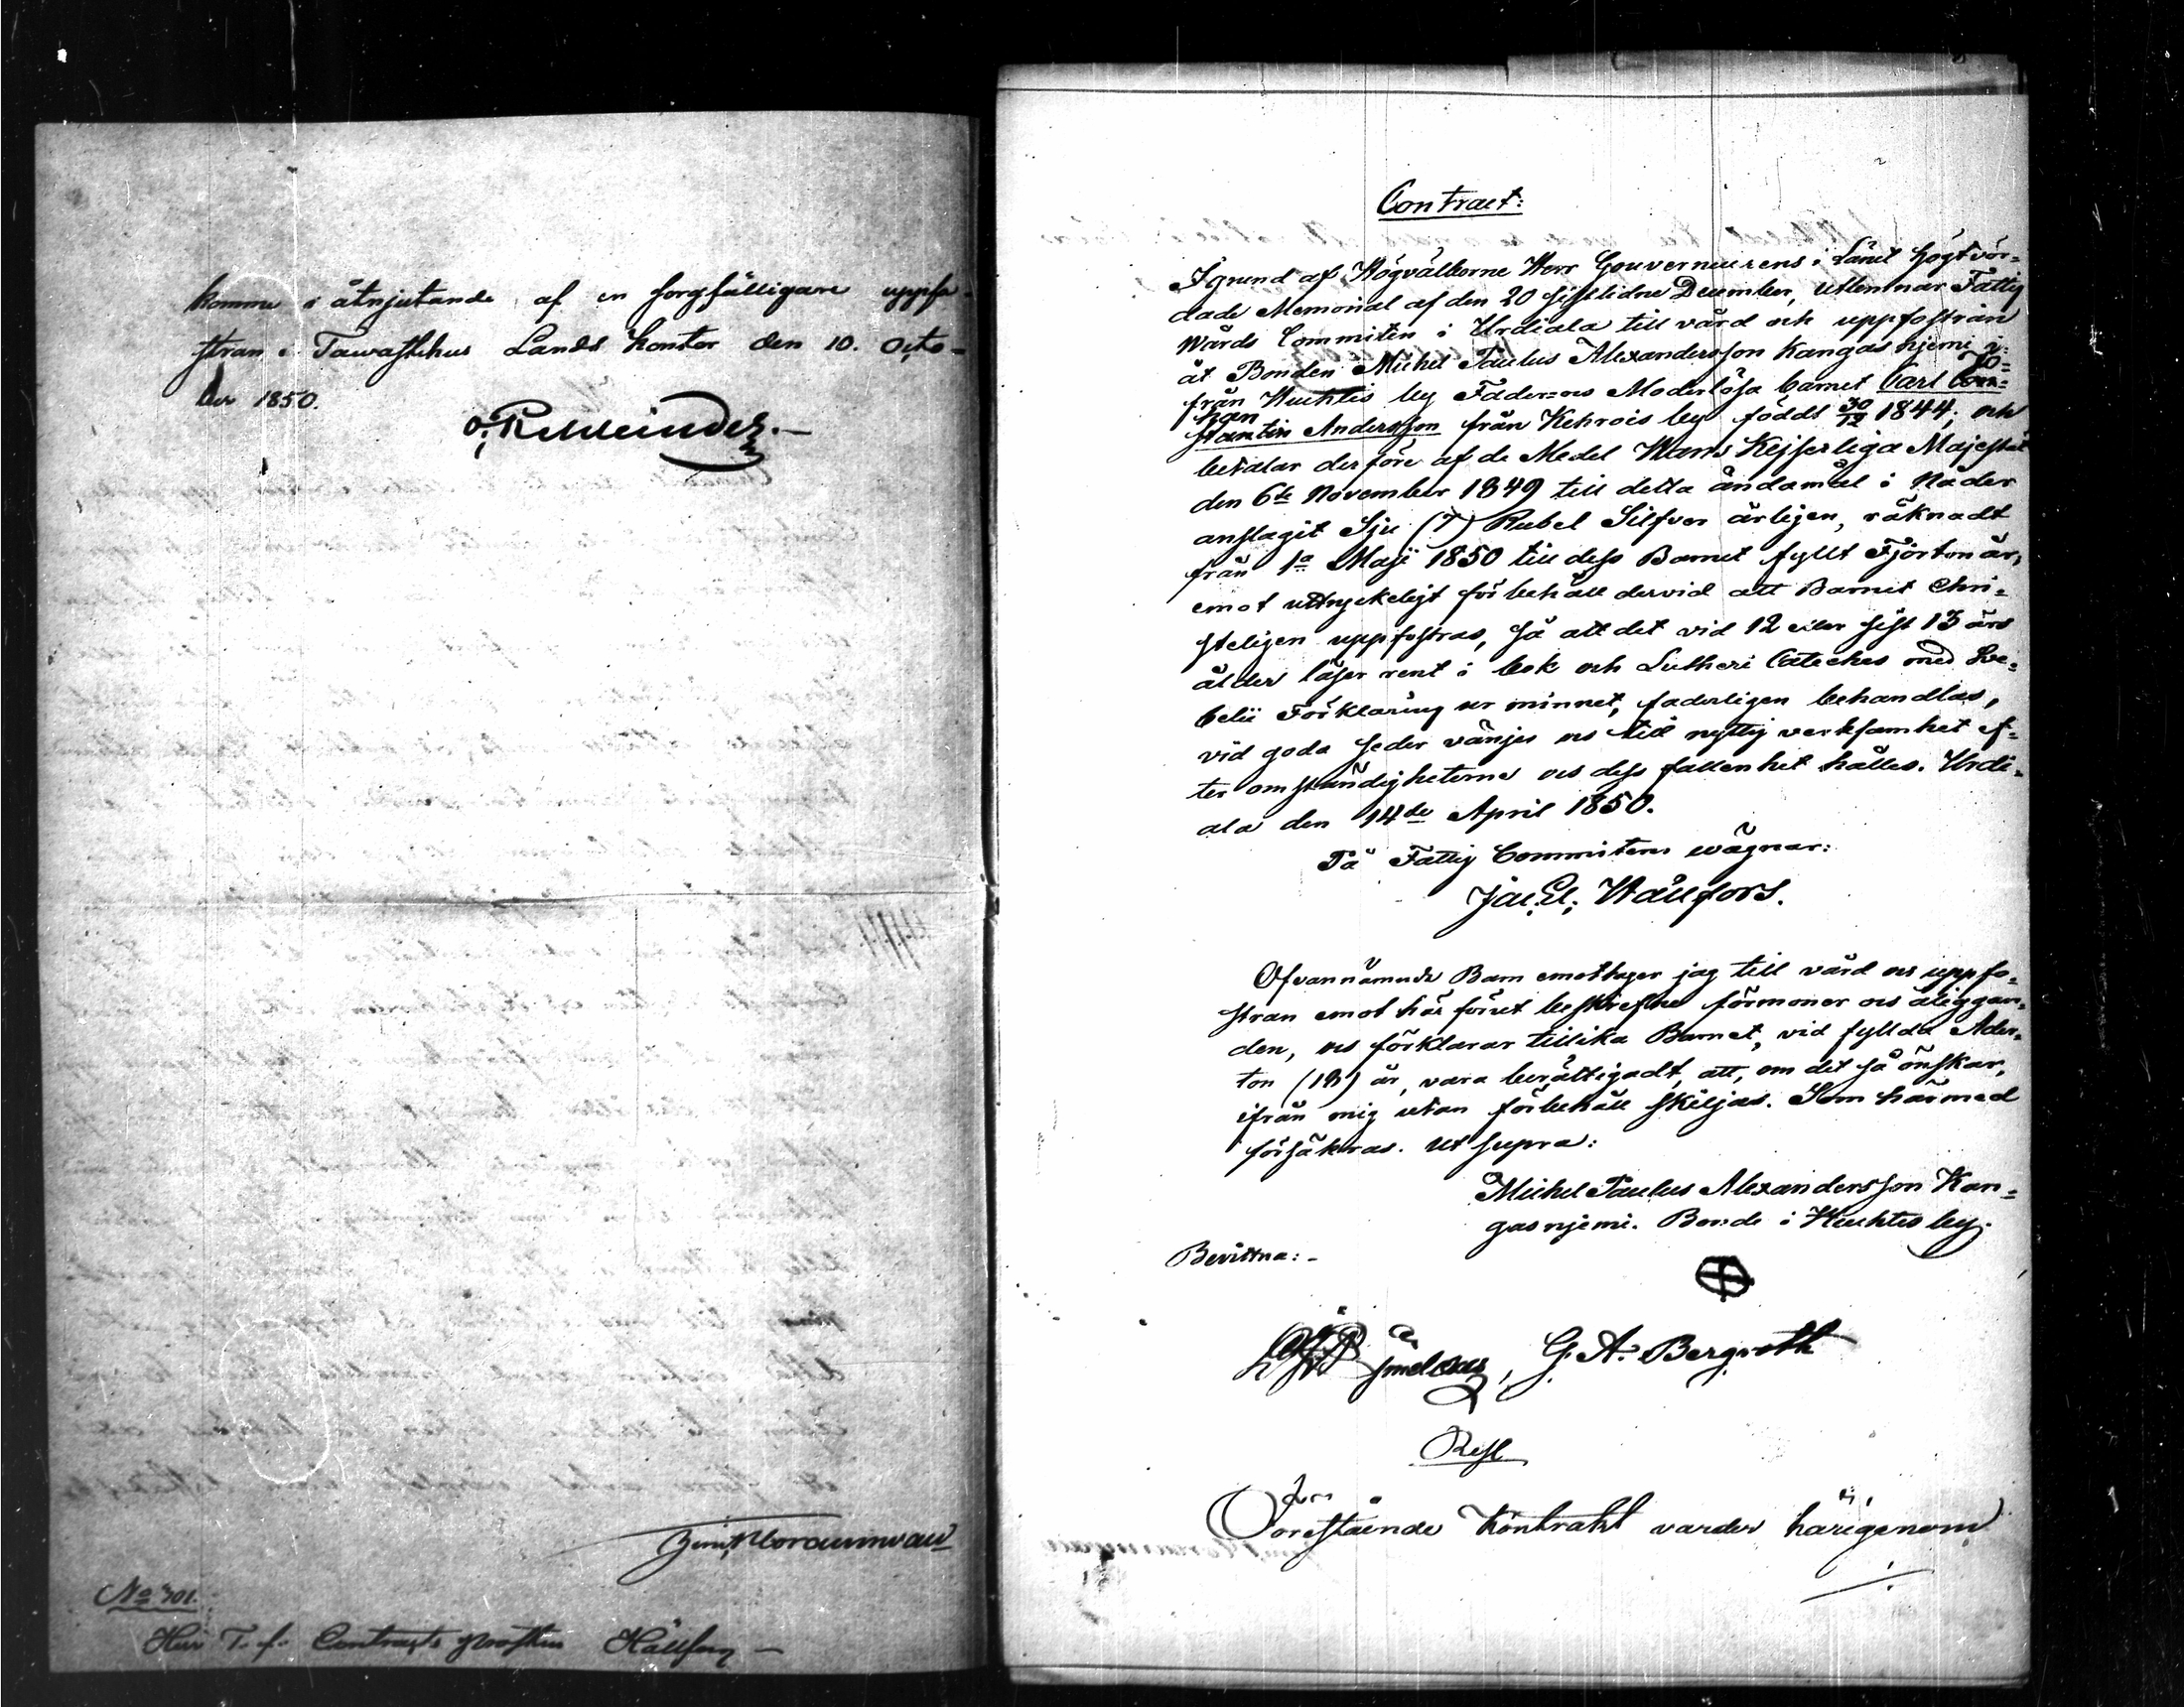 komme i åtnjutande af en sorgfälligare uppfo-
stran i Tawastehus Lands Kontor den 10. Octo-
ber 1850.
O. Rehbinder.
No 301.
Herr T. f. Contracts prosten Hällfors
Contract:
I grund af Högvälborne Herr Gouverneurens i Länet högtvör-
dade Memorial af den 20 sistlidne December, utlemnar Fattig
Wårds Committén i Urdiala till vård och uppfostran
åt Bonden Michel Paulus Alexandersson Kangasnjemi
från Huhtis by Fader- och Moderlösa barnet Carl Con= Jo=
han
stantin Andersson från Kehrois by födt 30/12 1844, och
betalar derföre af de Medel Hans Kejserliga Majestät
den 6te November 1849 till detta ändamål i Nåder
anslagit Sju (7) Rubel Silfver årligen, räknadt
från 1a Maji 1850 till dess Barnet fyllt Fjorton år,
emot uttryckeligt förbehåll dervid att Barnet Chri=
steligen uppfostras, så att det vid 12 eller sist 13 års
ålder läser rent i bok och Lutheri Cateches med Sve=
belii Förklaring ur minnet, faderligen behandlas,
vid goda seder vänjes och till nyttig verksamhet ef=
ter omständigheterne och dess fallenhet hålles. Urdi=
ala den 14de April 1850.
På Fattig Committéns wägnar:
Jac. El. Hällfors.
Ofvannämnde Barn emottager jag till vård och uppfo=
stran emot här förut beskrefne förmoner och åliggan=
den, och förklarar tillika Barnet, vid fyllda Ader=
ton (18) år, vara berättigadt, att, om det så önskar,
ifrån mig utan förbehåll skiljas. Som härmed
försäkras. Ut supra:
Michel Paulus Alexandersson Kan=
gasnjemi. Bonde i Huhtis by.
Bevittna:-
G. A. Bergroth
Resl
Förestående Kontrakt varder härigenom